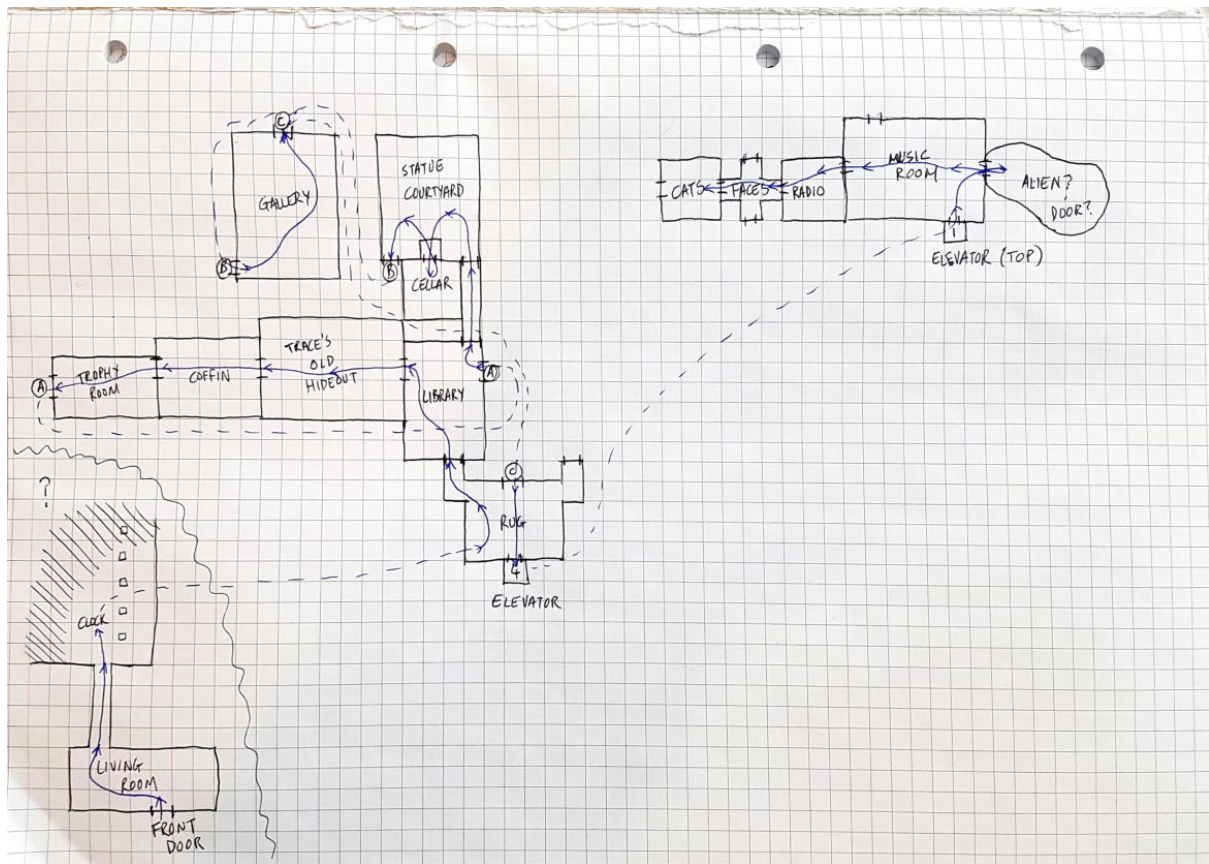 C
GALLERY
B
STATUE
COURTYARD
B
CELLAR
CATS
FACES
RADIO
MUSIC
ROOM
ALIEN?
DOOR?
1
ELEVATOR (TOP)
A
TROPHY
ROOM
COFFIN
TRACE'S
OLD
HIDEOUT
LIBRARY
A
C
RUG
4
ELEVATOR
?
CLOCK
LIVING
ROOM
FRONT
DOOR